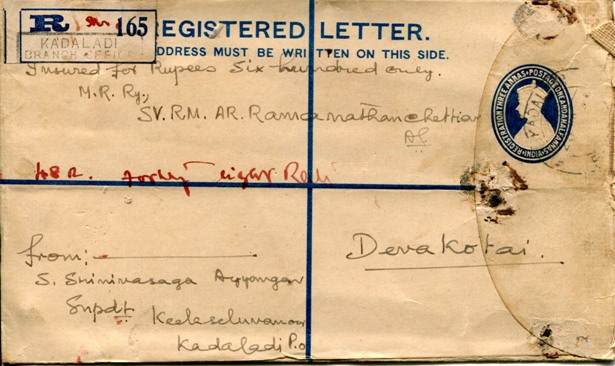 R 165
KADALADI
BRANCH OFFICE
REGISTERED LETTER.
ADDRESS MUST BE WRITTEN ON THIS SIDE.
Insured for Rupees Six hundred only.
M.R.Ry.,
SV.RM.AR.Ramanathan Chettiar
REGISTRATION THREE ANNAS • POSTAGE ONE AND A HALF ANNAS • INDIA
48 R.
Devakotai.
from:
S. Srinivasaga Ayyangar
Supdt
Keelaseluvanoor
Kadaladi P.o